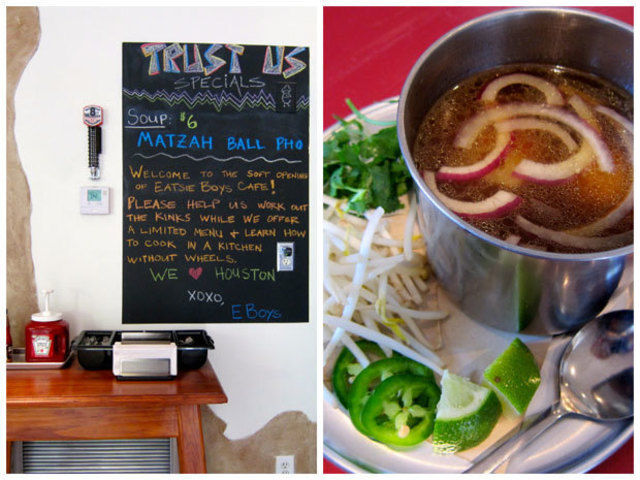 TRUST US
SPECIALS
SOUP: $6
MATZAH BALL PHO
WELCOME TO THE SOFT OPENING
OF EATSIE BOYS CAFE!
PLEASE HELP US WORK OUT
THE KINKS WHILE WE OFFER
A LIMITED MENU & LEARN HOW
TO COOK IN A KITCHEN
WITHOUT WHEELS.
WE ♥ HOUSTON
XOXO,
EBOYS
HEINZ